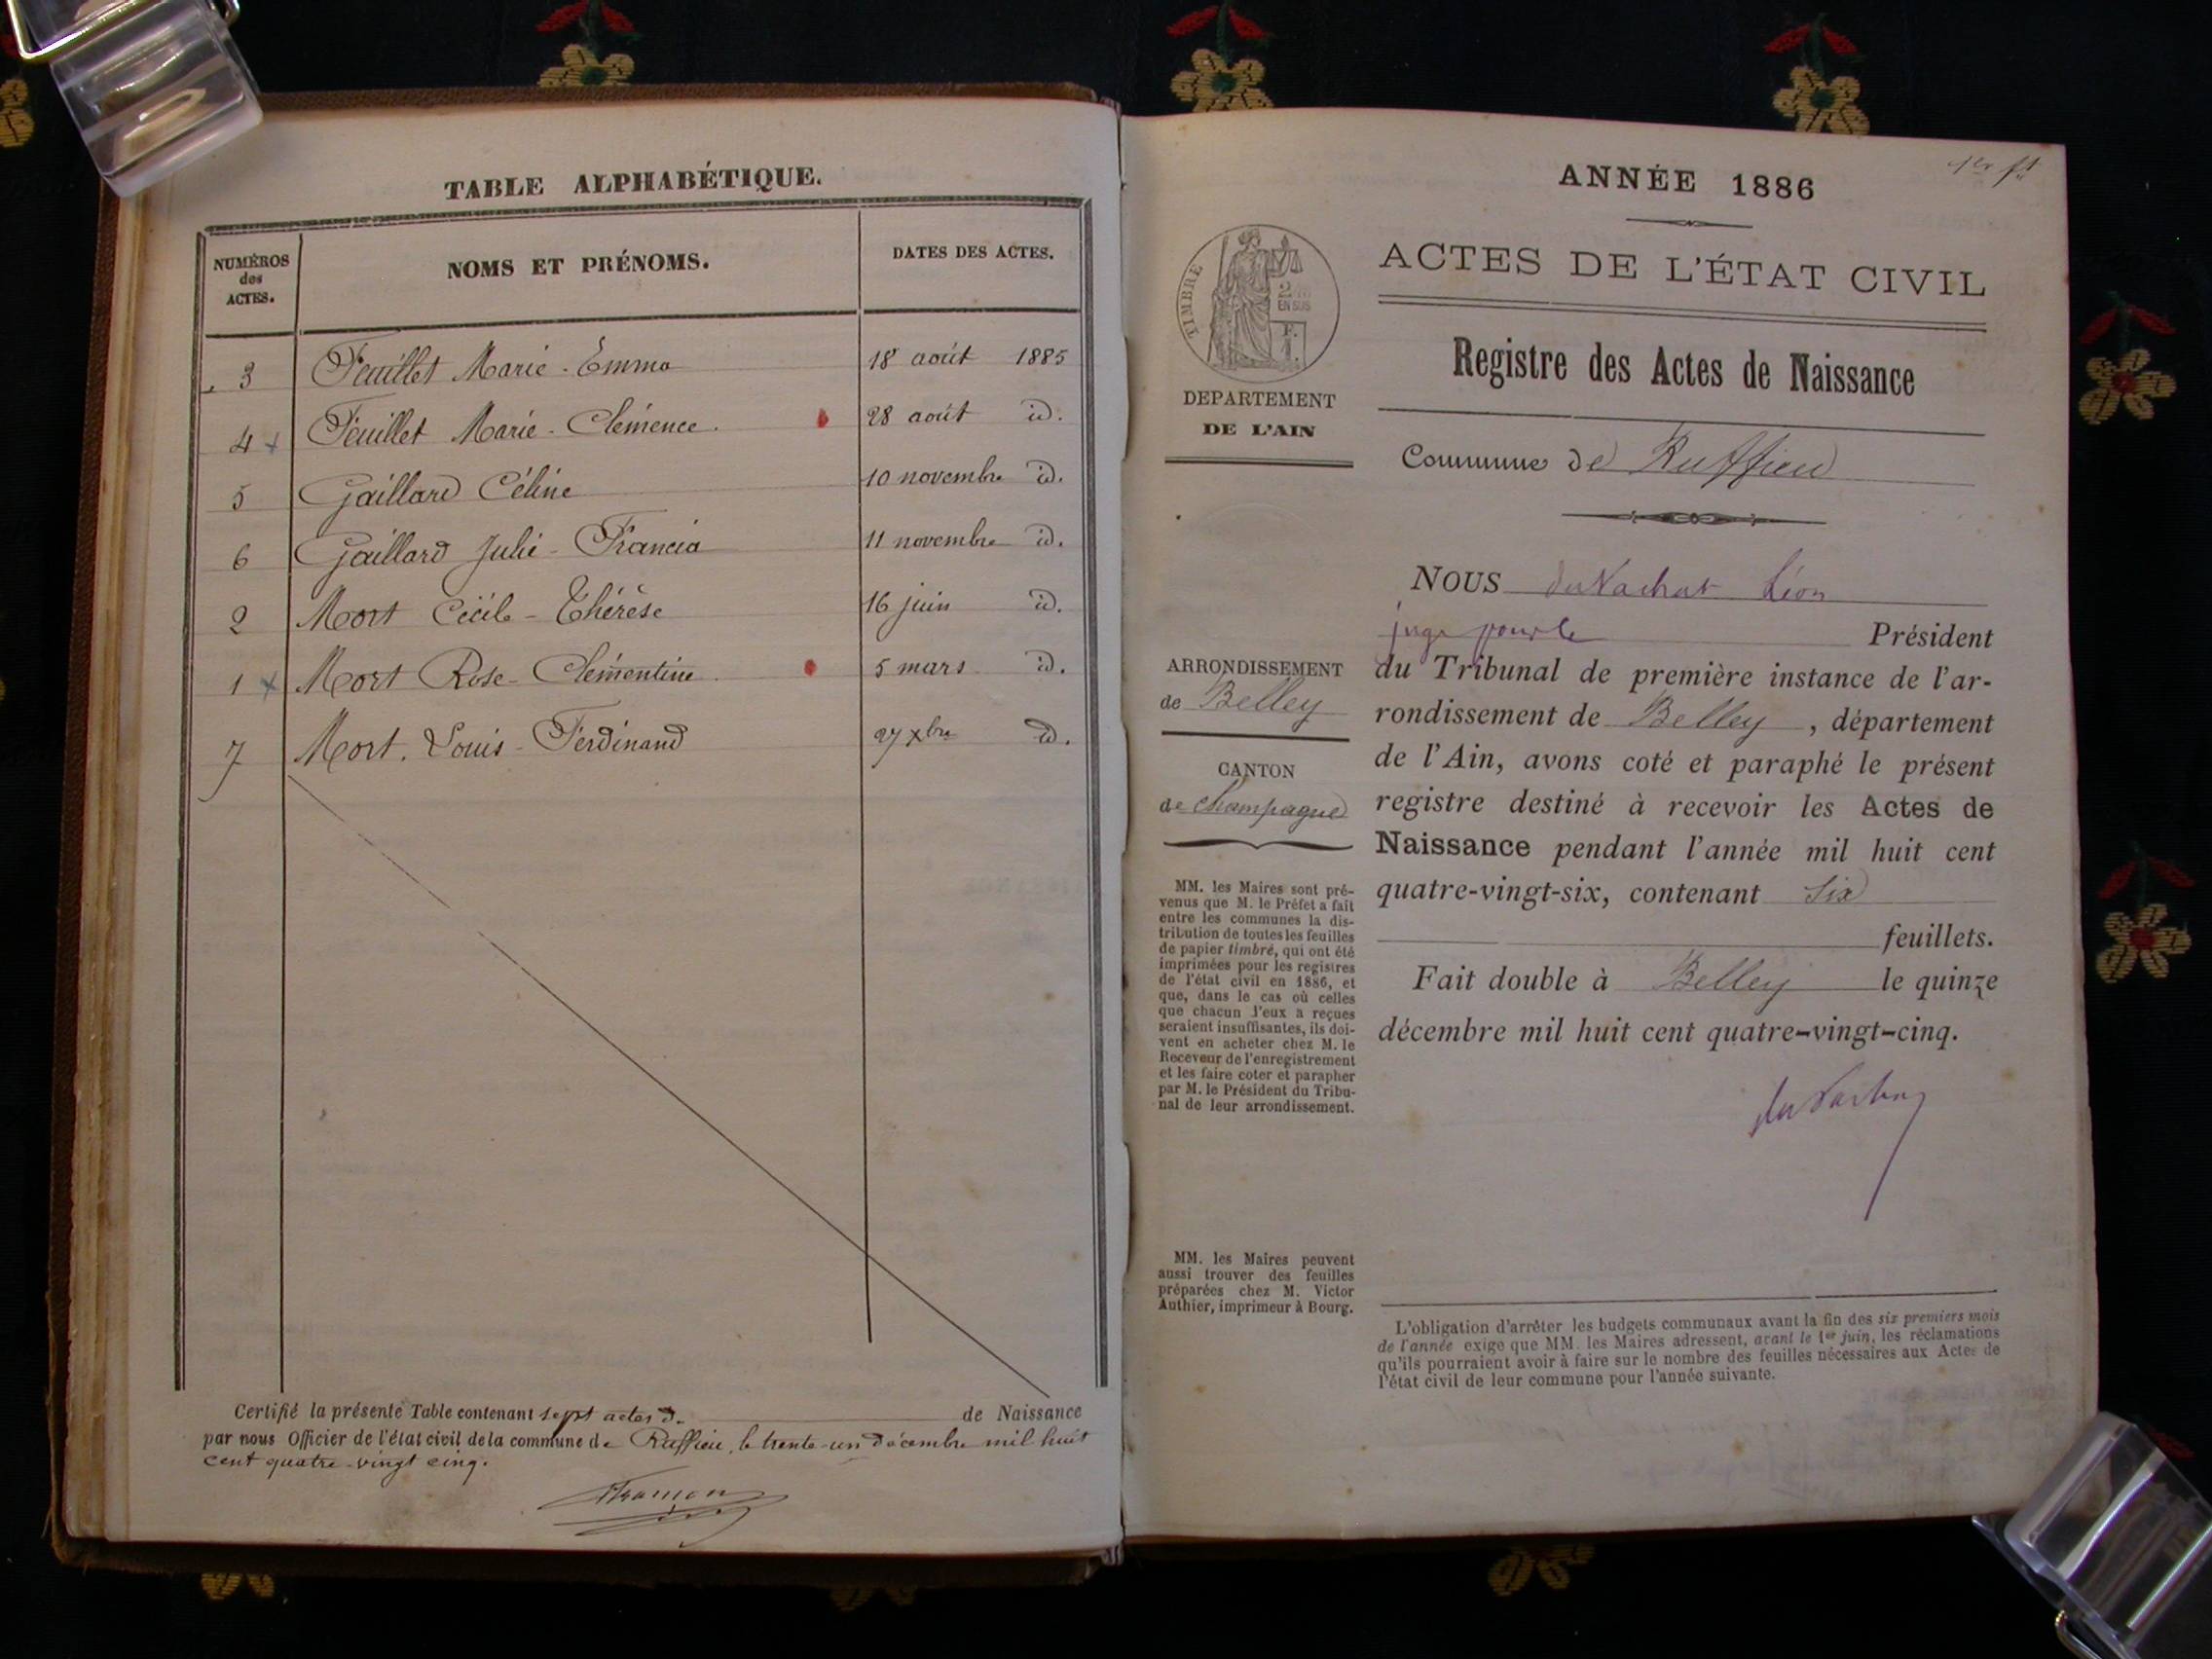 TABLE ALPHABÉTIQUE.
NUMÉROS des ACTES.
NOMS ET PRÉNOMS.
DATES DES ACTES.
3 Feuillet Marie-Emma 18 août 1885
4 Feuillet Marie-Clémence. 28 août id.
5 Gaillard Céline 10 novembre id.
6 Gaillard Julie-Francia 11 novembre id.
2 Mort Cécile-Thérèse 16 juin id.
1 Mort Rose-Clémentine 5 mars id.
7 Mort. Louis-Ferdinand 27 xbre id.
Certifié la présente Table contenant sept actes de de Naissance
par nous Officier de l'état civil de la commune de Ruffieu, le trente-un décembre mil huit
cent quatre-vingt cinq.
1er ft
ANNÉE 1886
ACTES DE L'ÉTAT CIVIL
Registre des Actes de Naissance
Commune de Ruffieu
TIMBRE
2
EN SUS
DEPARTEMENT
DE L'AIN
ARRONDISSEMENT
de Belley
CANTON
de Champagne
MM. les Maires sont pré-
venus que M. le Préfet a fait
entre les communes la dis-
tribution de toutes les feuilles
de papier timbré, qui ont été
imprimées pour les registres
de l'état civil en 1886, et
que, dans le cas où celles
que chacun d'eux a reçues
seraient insuffisantes, ils doi-
vent en acheter chez M. le
Receveur de l'enregistrement
et les faire coter et parapher
par M. le Président du Tribu-
nal de leur arrondissement.
MM. les Maires peuvent
aussi trouver des feuilles
préparées chez M. Victor
Authier, imprimeur à Bourg.
NOUS du Nachat Léon
juge pour le Président
du Tribunal de première instance de l'ar-
rondissement de Belley, département
de l'Ain, avons coté et paraphé le présent
registre destiné à recevoir les Actes de
Naissance pendant l'année mil huit cent
quatre-vingt-six, contenant six
feuillets.
Fait double à Belley le quinze
décembre mil huit cent quatre-vingt-cinq.
L'obligation d'arrêter les budgets communaux avant la fin des six premiers mois
de l'année exige que MM. les Maires adressent, avant le 1er juin, les réclamations
qu'ils pourraient avoir à faire sur le nombre des feuilles nécessaires aux Actes de
l'état civil de leur commune pour l'année suivante.